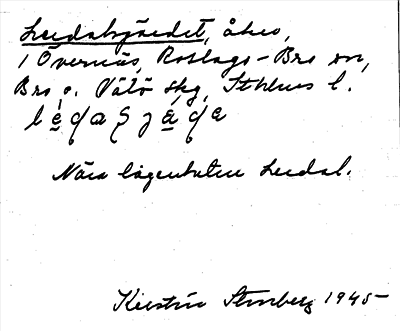 Ledalsgärdet, åker,
i Övernäs, Roslags-Bro sn,
Bro o. Vätö skg, Sthlms l.
Nära lägenheten Ledal.
Kerstin Stenberg 1945